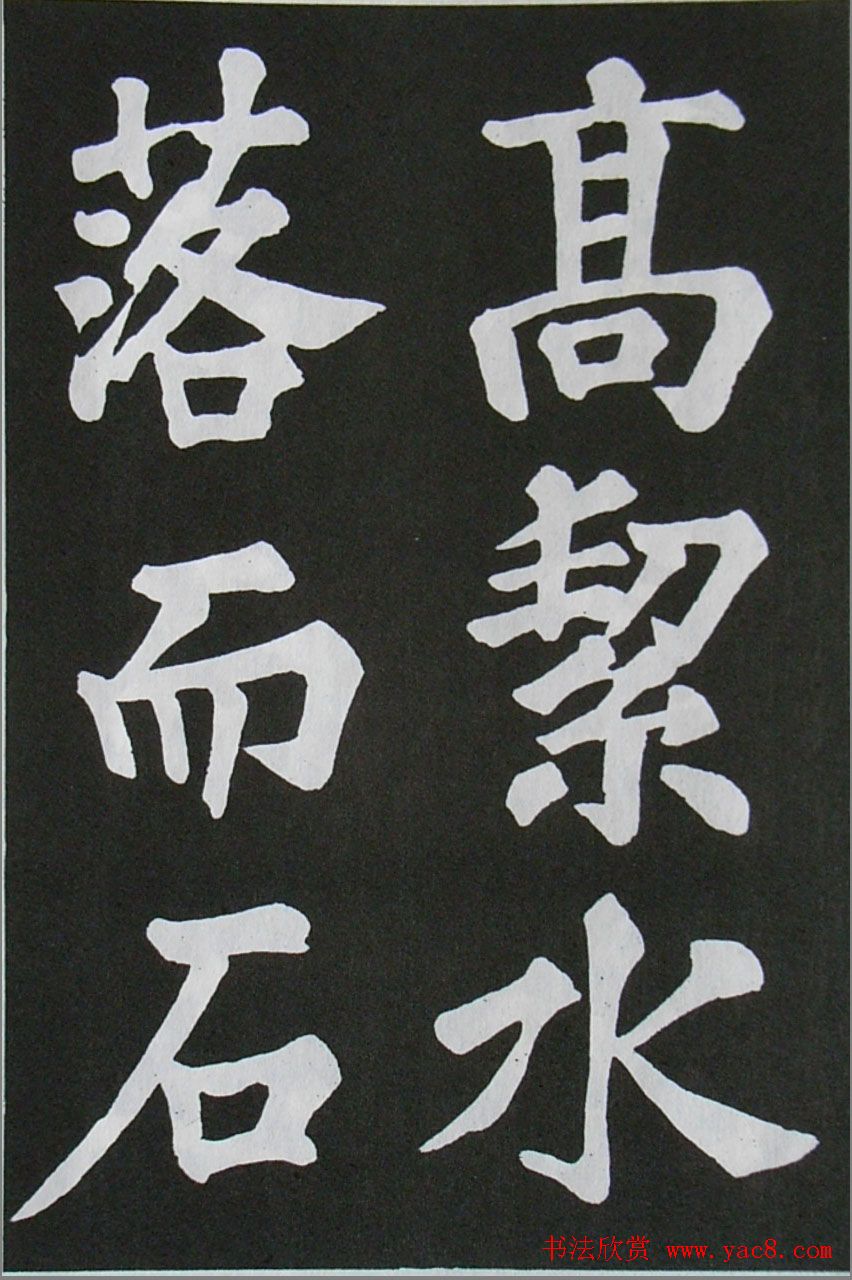 髙絜水
落而石
书法欣赏 www.yac8.com